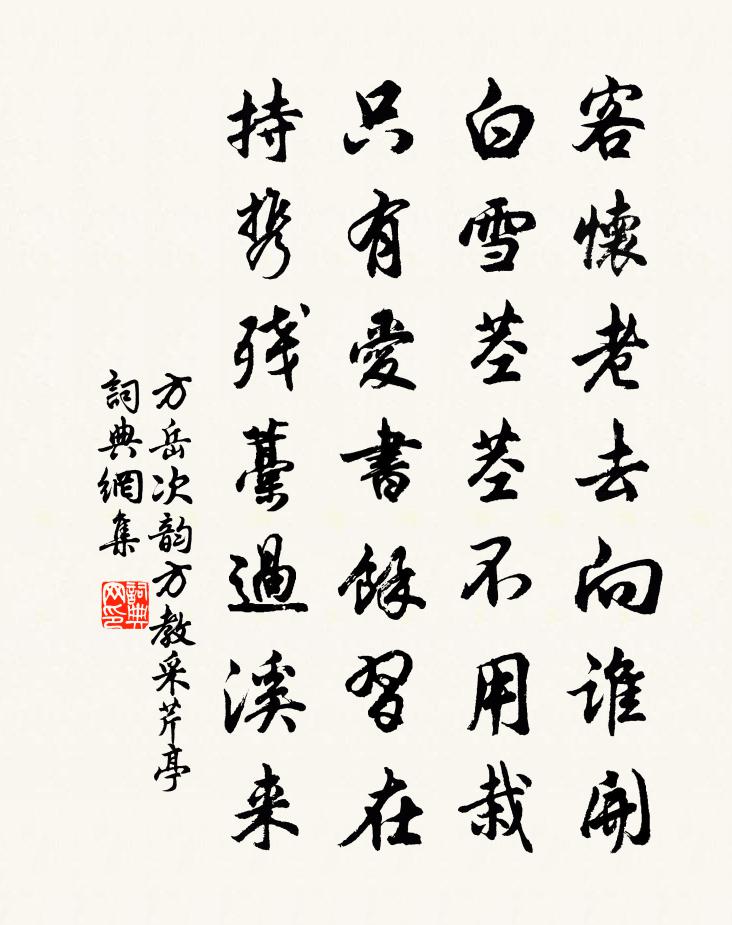 客懷老去向誰開
白雪茎茎不用栽
只有愛書餘習在
持携残藳過溪来
方岳次韵方教采芹亭
詞典網集
詞典网印